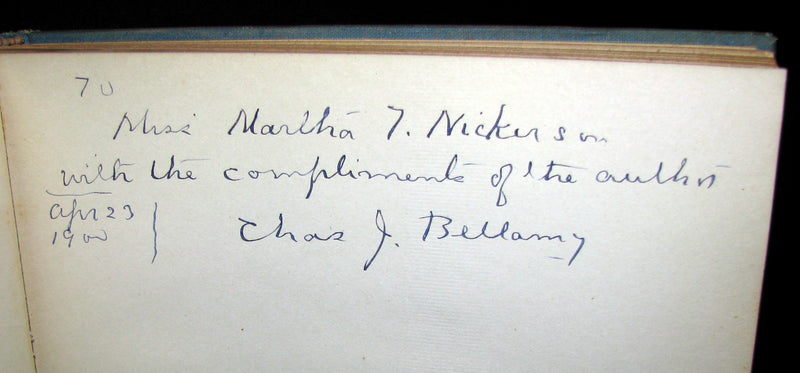 To
Miss Martha T. Nickerson
with the compliments of the author
Apr 23
1900
Chas J. Bellamy